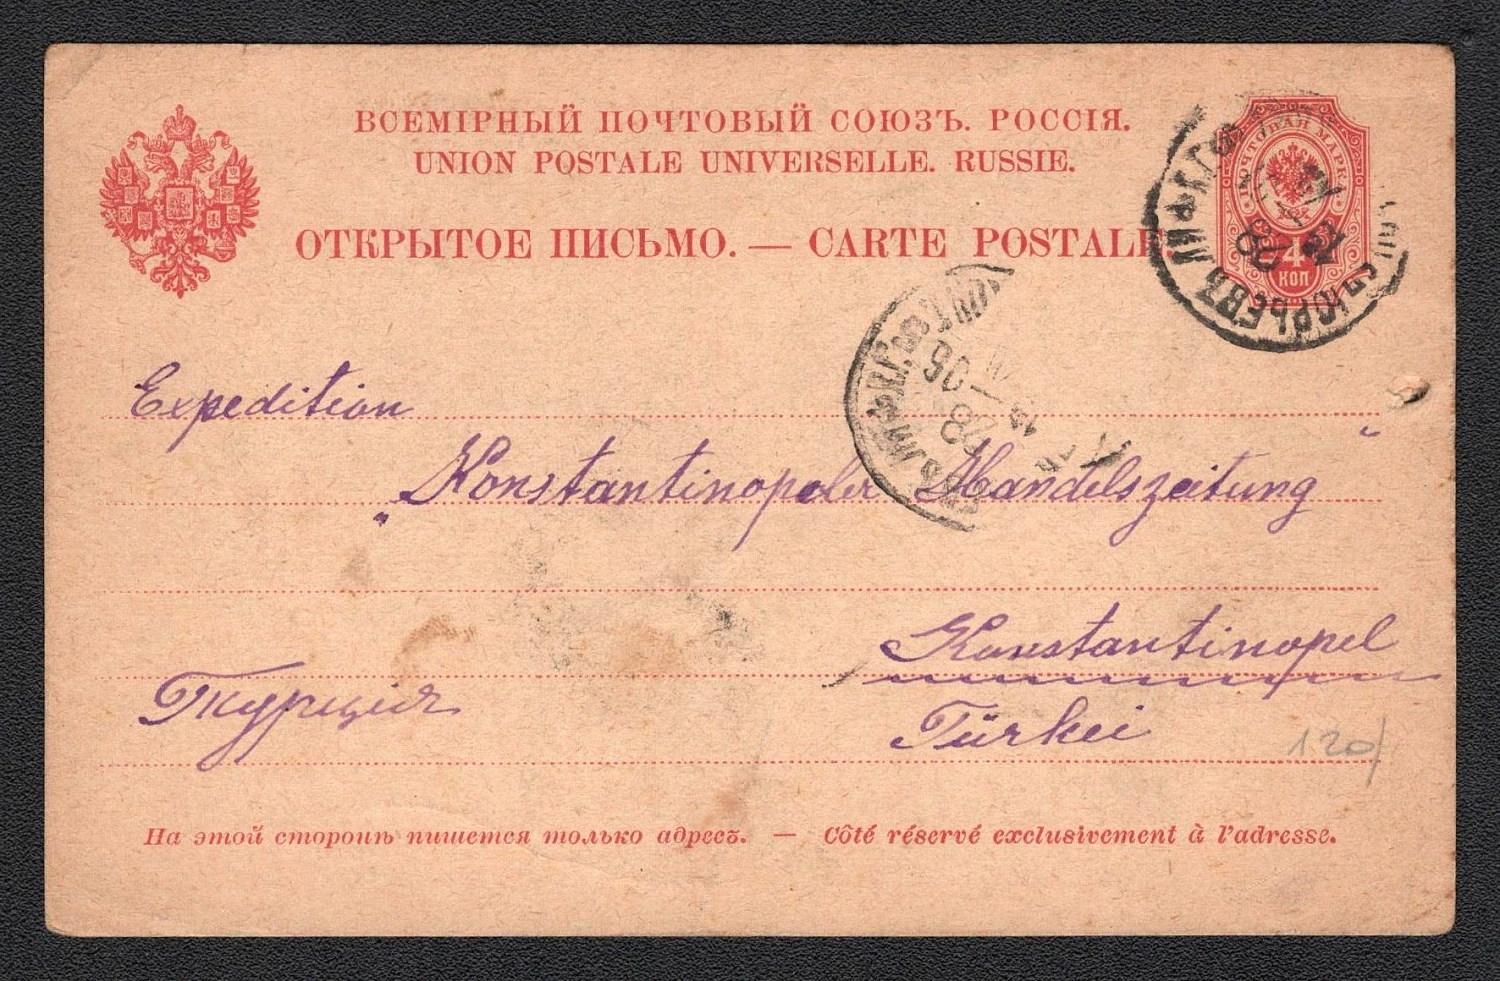 ВСЕМІРНЫЙ ПОЧТОВЫЙ СОЮЗЪ. РОССІЯ.
UNION POSTALE UNIVERSELLE. RUSSIE.
ОТКРЫТОЕ ПИСЬМО. — CARTE POSTALE
ПОЧТОВАЯ МАРКА
4
КОП
ЮРЬЕВЪ ЛИФЛ. Г.
Expedition
„Konstantinopoler Handelszeitung“
Konstantinopel
Турція
Türkei
120/
На этой сторонѣ пишется только адресъ. — Côté réservé exclusivement à l'adresse.